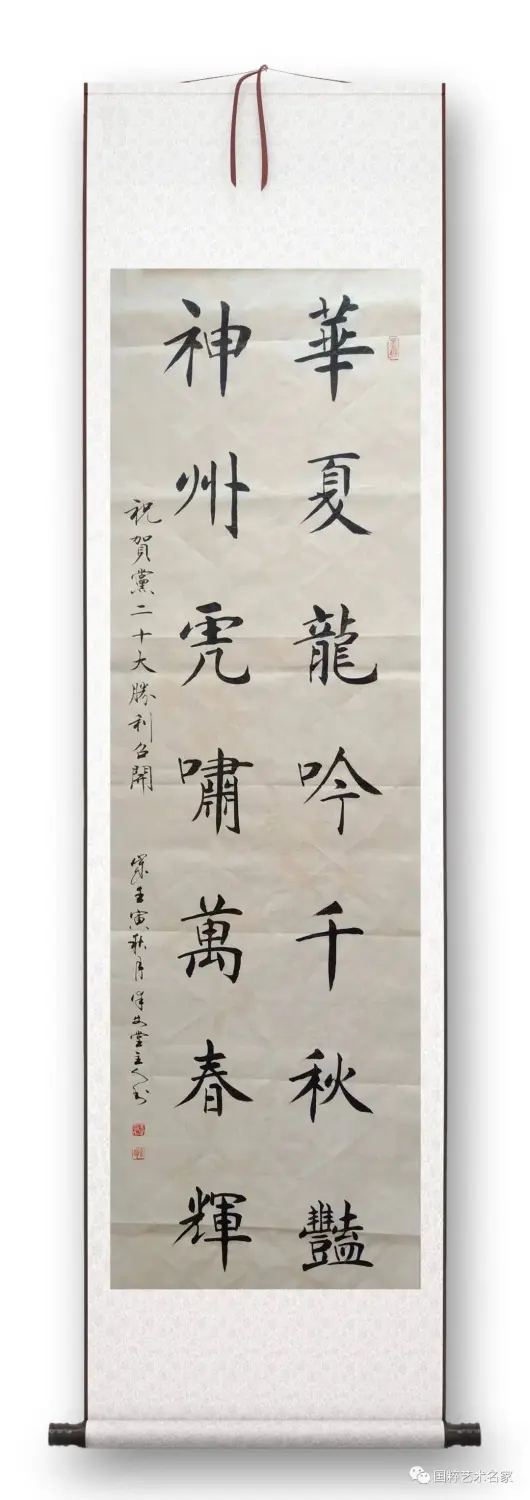 華夏龍吟千秋豔
神州虎嘯萬春輝
祝賀黨二十大勝利召開
歲壬寅秋月文堂主人书
国粹艺术名家